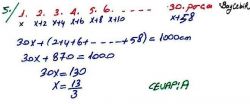 5-) 1. 2. 3. 4. 5. 6. ...... 30. parça
x x+2 x+4 x+6 x+8 x+10 x+58
30x + (2+4+6+ ..... +58) = 1000cm
30x + 870 = 1000
30x = 130
x = 13/3
CEVAP: A